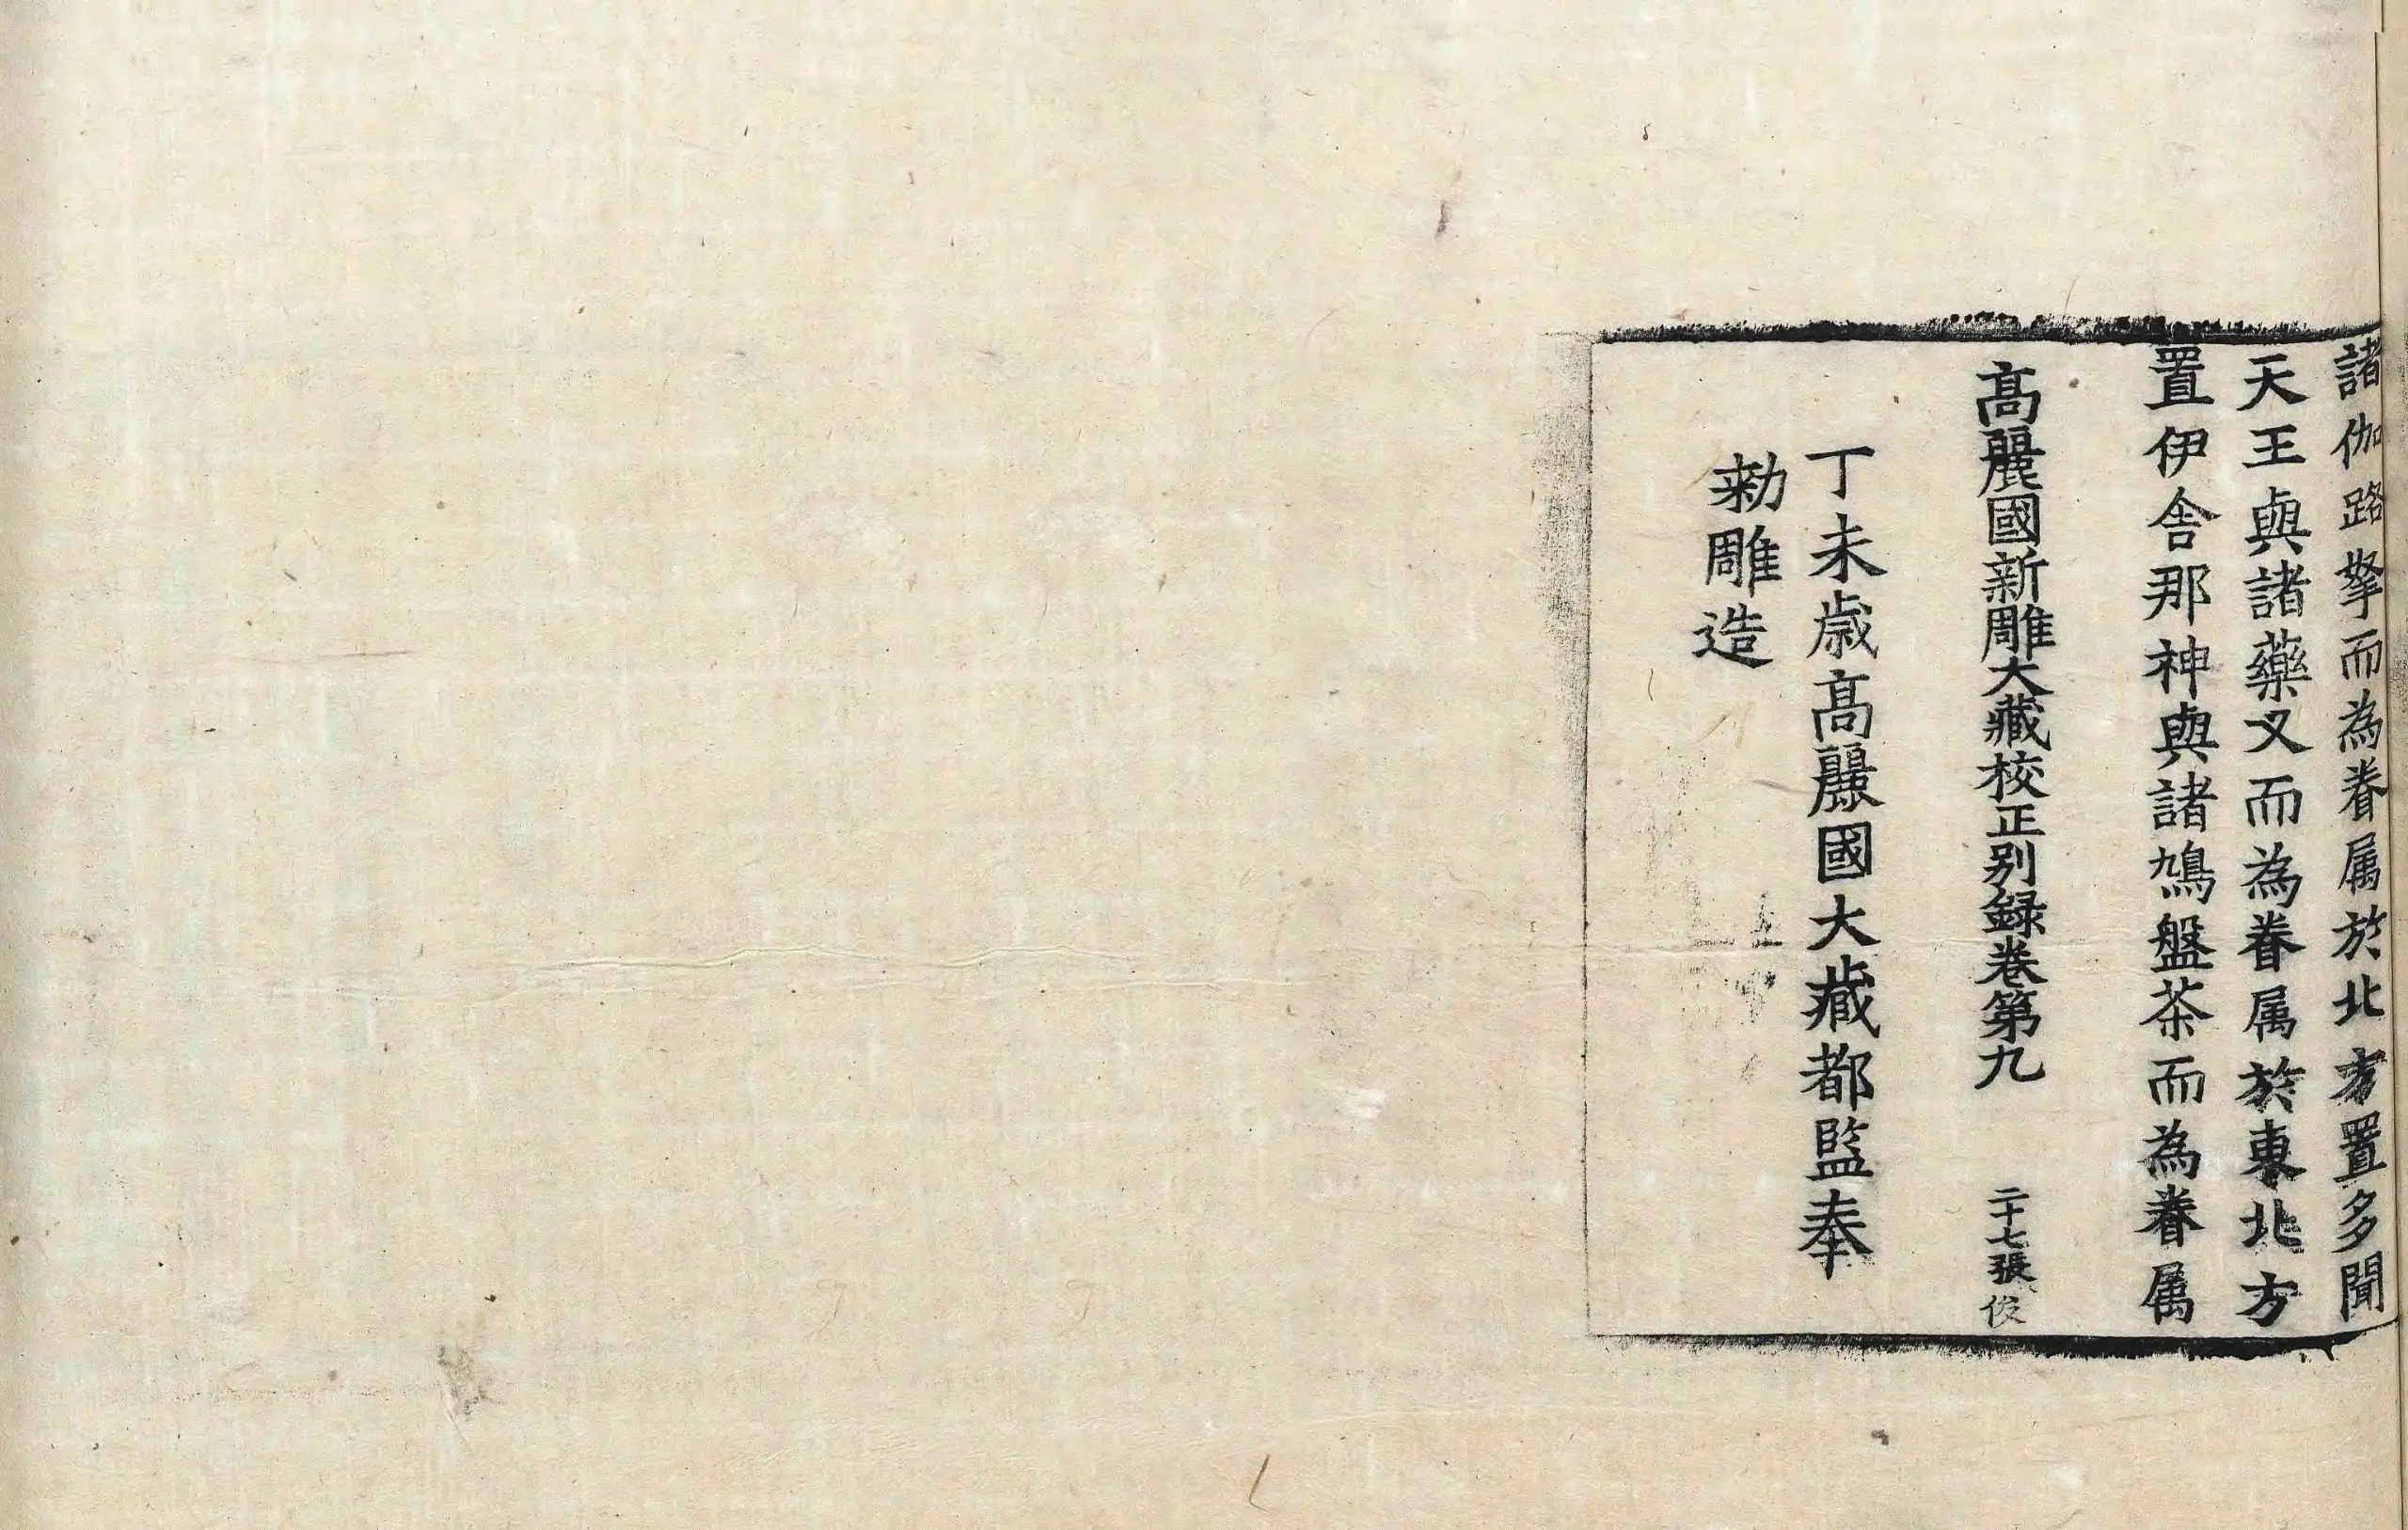 諸伽路拏而為眷属於北方置多聞
天王與諸藥叉而為眷属於東北方
置伊舎那神與諸鳩盤茶而為眷属
高麗國新雕大藏校正别録卷第九 二十七張 俊
丁未歳高麗國大藏都監奉
勑雕造